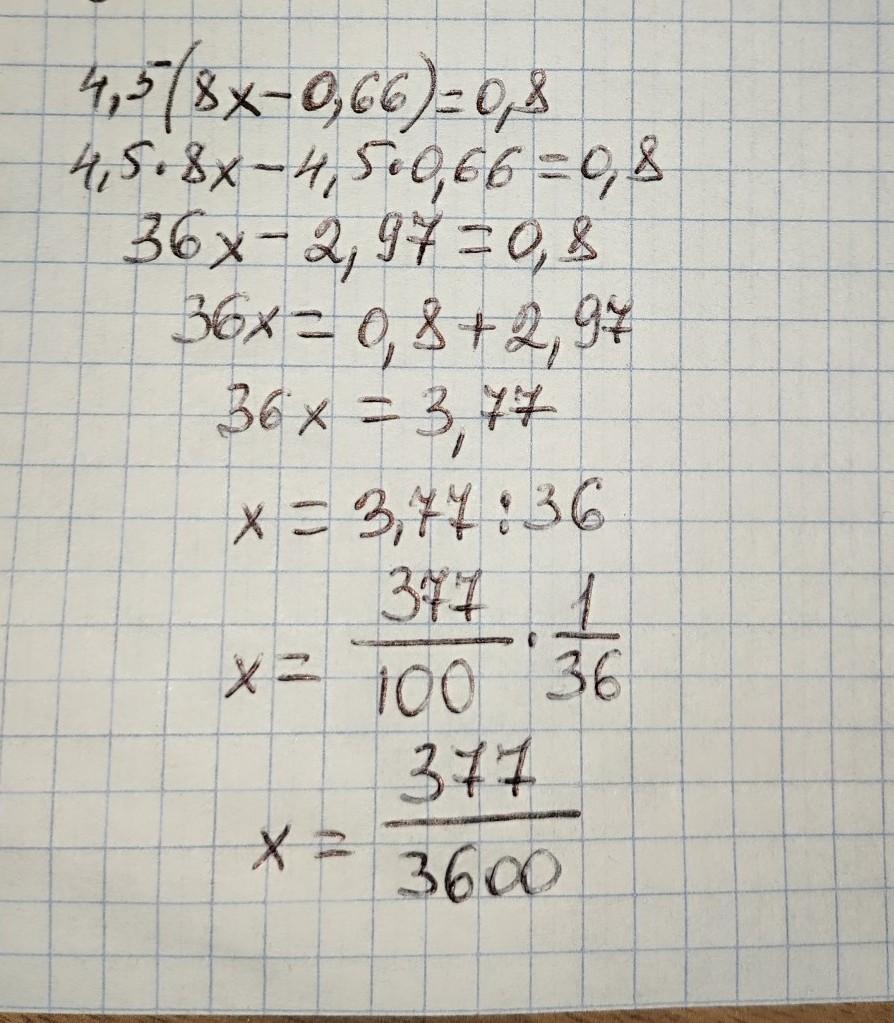 4,5(8x-0,66)=0,8
4,5·8x-4,5·0,66=0,8
36x-2,97=0,8
36x=0,8+2,97
36x=3,77
x=3,77:36
x=377/100·1/36
x=377/3600